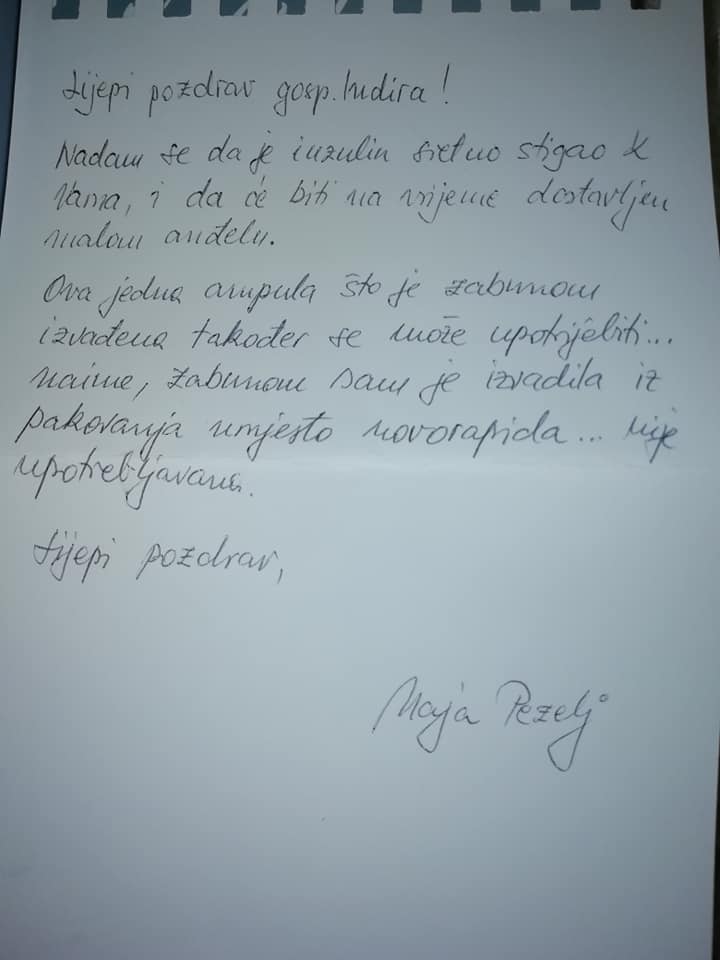 Lijepi pozdrav gosp. Indira!
Nadam se da je inzulin sretno stigao k
Vama, i da će biti na vrijeme dostavljen
malom anđelu.
Ova jedna ampula što je zabunom
izvađena također se može upotrijebiti...
naime, zabunom sam je izvadila iz
pakovanja umjesto novorapida... Nije
upotrebljavana.
Lijepi pozdrav,
Maja Pezelj